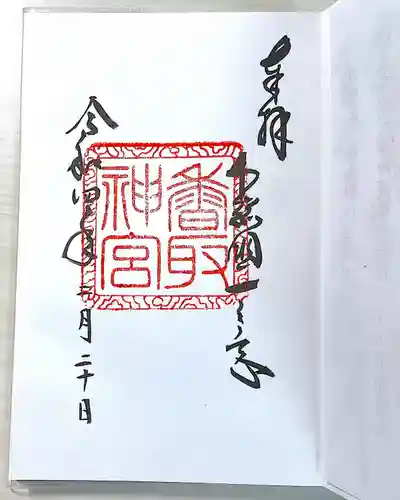 奉拝
下総国一之宮
香取
神宮
令和四年三月二十日